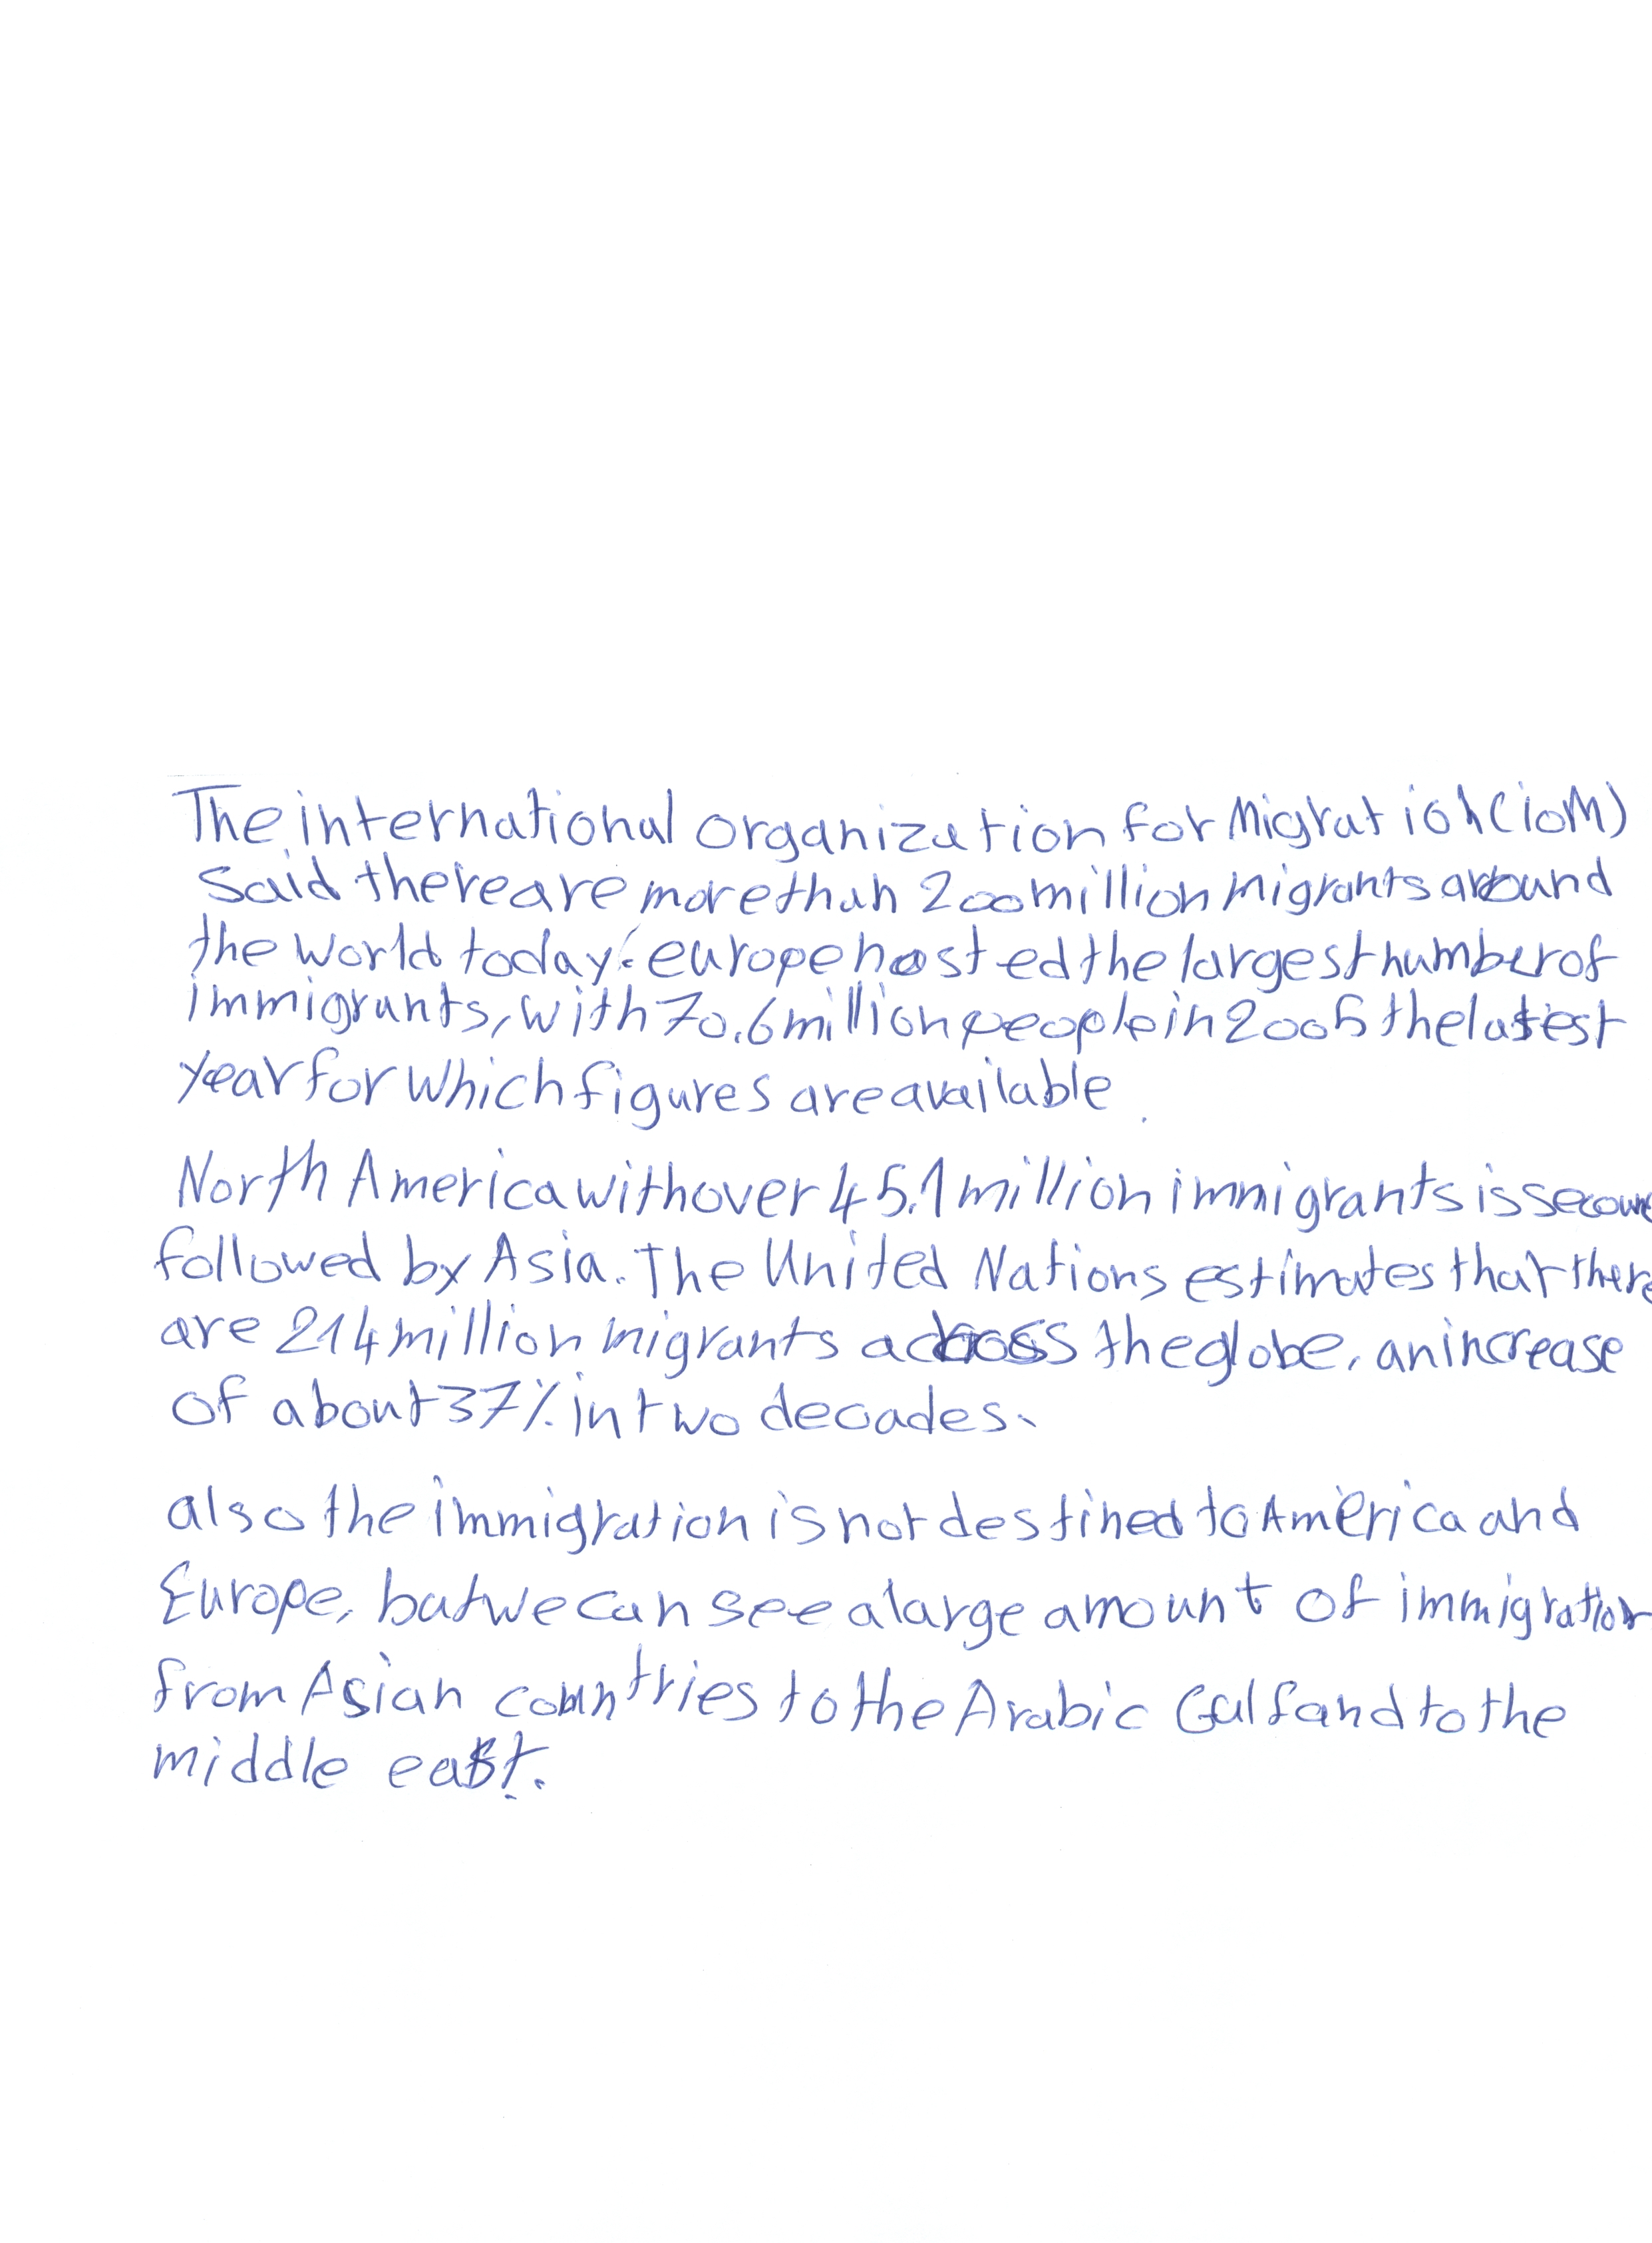 The international organization for Migration (ioM)
Said there are more than 200 million migrants around
the world today. europe hosted the largest number of
immigrants, with 70.6 million people in 2005 the latest
year for which figures are available.
North America with over 45.1 million immigrants is
followed by Asia. The United Nations estimates that there
are 214 million migrants across the globe, an increase
of about 37% in two decades.
also the immigration is not destined to America and
Europe, but we can see a large amount of immigration
from Asian countries to the Arabic Gulf and to the
middle east.